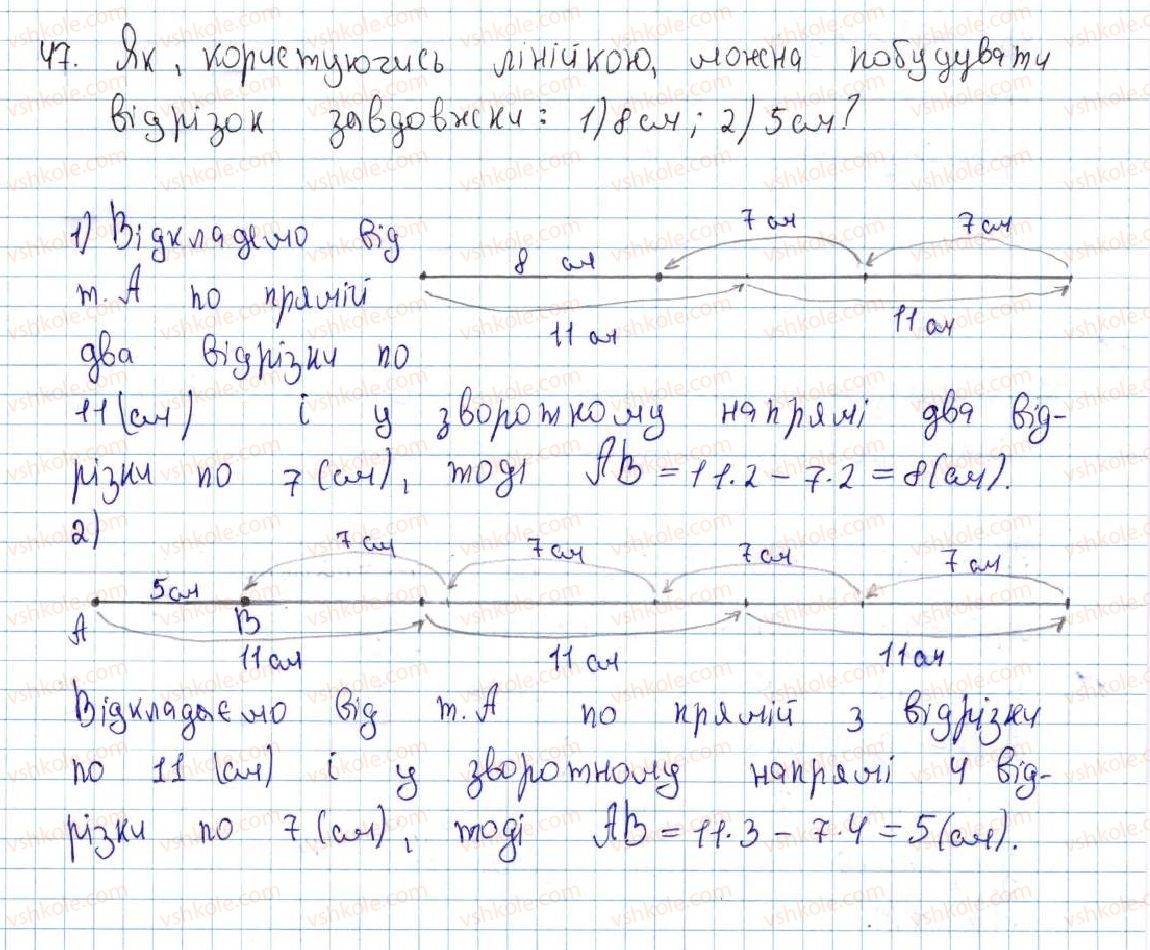 47. Як, користуючись лінійкою, можна побудувати
відрізок завдовжки: 1) 8 см; 2) 5 см?
1) Відкладемо від
т. А по прямій
два відрізки по
11 (см) і у зворотному напрямі два від-
різки по 7 (см), тоді АВ = 11·2 - 7·2 = 8 (см).
7 см 7 см
8 см
11 см 11 см
2)
7 см 7 см 7 см 7 см
5 см
А В
11 см 11 см 11 см
Відкладаємо від т. А по прямій 3 відрізки
по 11 (см) і у зворотному напрямі 4 від-
різки по 7 (см), тоді АВ = 11·3 - 7·4 = 5 (см).
vshkole.com